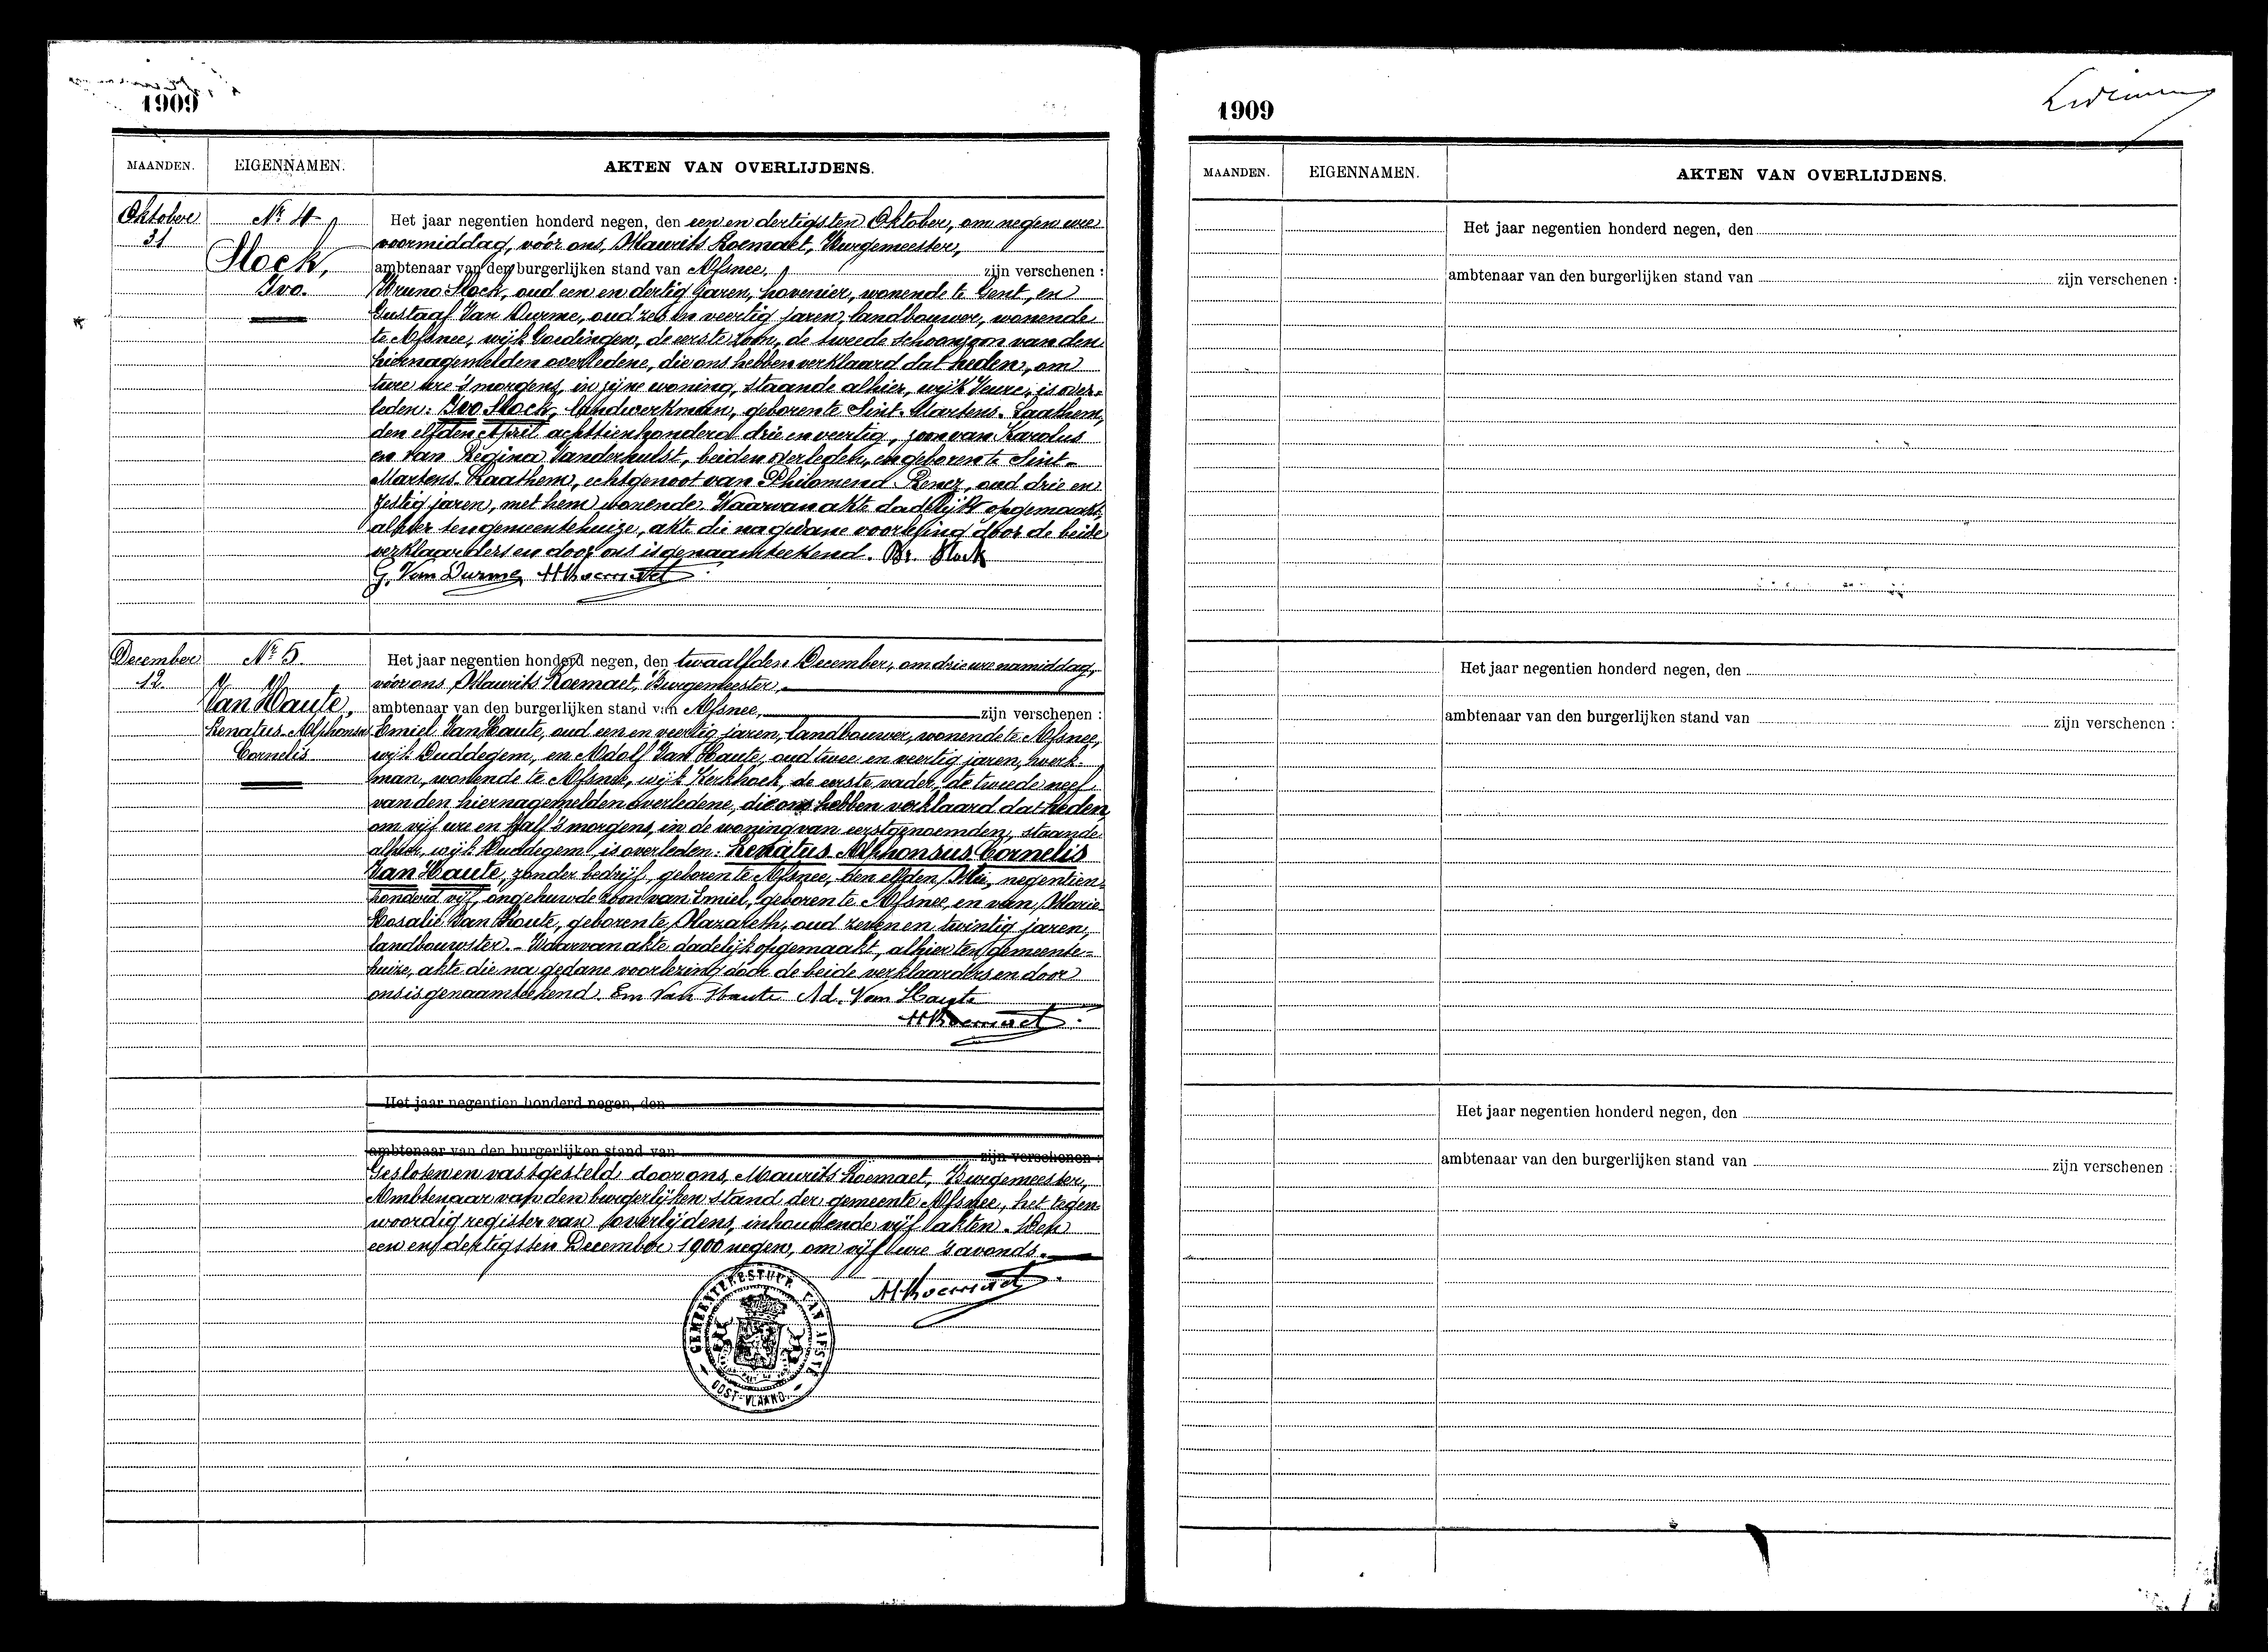 1909
MAANDEN. EIGENNAMEN. AKTEN VAN OVERLIJDENS.
Oktober 31
Nr 4
Stock, Ivo.
Het jaar negentien honderd negen, den een en dertigsten Oktober, om negen ure
voormiddag, vóór ons, Maurits Roemaet, Burgemeester,
ambtenaar van den burgerlijken stand van Afsnee, zijn verschenen :
Bruno Stock, oud een en dertig jaren, hovenier, wonende te Gent, en
Gustaaf Van Durme, oud zes en veertig jaren, landbouwer, wonende
te Afsnee, wijk Goedingen, de eerste zoon, de tweede schoonzoon van den
hiernagemelden overledene, die ons hebben verklaard dat heden, om
twee ure 's morgens, in zijne woning, staande alhier, wijk Veure, is over-
leden: Ivo Stock, landwerkman, geboren te Sint-Martens-Laathem,
den elfden April achttienhonderd drie en veertig, zoon van Karolus
en van Regina Vanderhulst, beiden overleden, en geboren te Sint-
Martens-Laathem, echtgenoot van Philomena, oud drie en
zestig jaren, met hem wonende. Waarvan akte dadelijk opgemaakt,
alhier ten gemeentehuize, akt die na gedane voorlezing door de beide
verklaarders en door ons is genaamteekend. Br. Stock
G. Van Durme MRoemaet
December 12.
Nr 5.
Van Haute, Renatus Alphonsus Cornelis
Het jaar negentien honderd negen, den twaalfden December, om drie ure namiddag,
vóór ons Maurits Roemaet, Burgemeester,
ambtenaar van den burgerlijken stand van Afsnee, zijn verschenen :
Emiel Van Haute, oud een en veertig jaren, landbouwer, wonende te Afsnee,
wijk Duddegem, en Adolf Van Haute, oud twee en veertig jaren, werk-
man, wonende te Afsnee, wijk Kerkhoek, de eerste vader, de tweede neef
van den hiernagemelden overledene, die ons hebben verklaard dat heden,
om vijf ure en half 's morgens, in de woning van eerstgenoemden, staande
alhier, wijk Duddegem, is overleden: Renatus Alphonsus Cornelis
Van Haute, zonder bedrijf, geboren te Afsnee, den elfden Mei, negentien-
honderd vijf, ongehuwde zoon van Emiel, geboren te Afsnee, en van Marie
Rosalie Van Houte, geboren te Nazareth, oud zeven en twintig jaren,
landbouwster. - Waarvan akte dadelijk opgemaakt, alhier ten gemeente-
huize, akte die na gedane voorlezing door de beide verklaarders en door
ons is genaamteekend. Em Van Haute Ad. Van Haute
MRoemaet
Het jaar negentien honderd negen, den
ambtenaar van den burgerlijken stand van zijn verschenen :
Gesloten en vastgesteld door ons, Maurits Roemaet, Burgemeester,
Ambtenaar van den burgerlijken stand der gemeente Afsnee, het tegen-
woordig register van overlijdens, inhoudende vijf akten. Den
een en dertigsten December 1900 negen, om vijf ure 's avonds.
MRoemaet
GEMEENTEBESTUUR VAN AFSNÉ
OOST-VLAAND.
1909
MAANDEN. EIGENNAMEN. AKTEN VAN OVERLIJDENS.
Het jaar negentien honderd negen, den
ambtenaar van den burgerlijken stand van zijn verschenen :
Het jaar negentien honderd negen, den
ambtenaar van den burgerlijken stand van zijn verschenen :
Het jaar negentien honderd negen, den
ambtenaar van den burgerlijken stand van zijn verschenen :